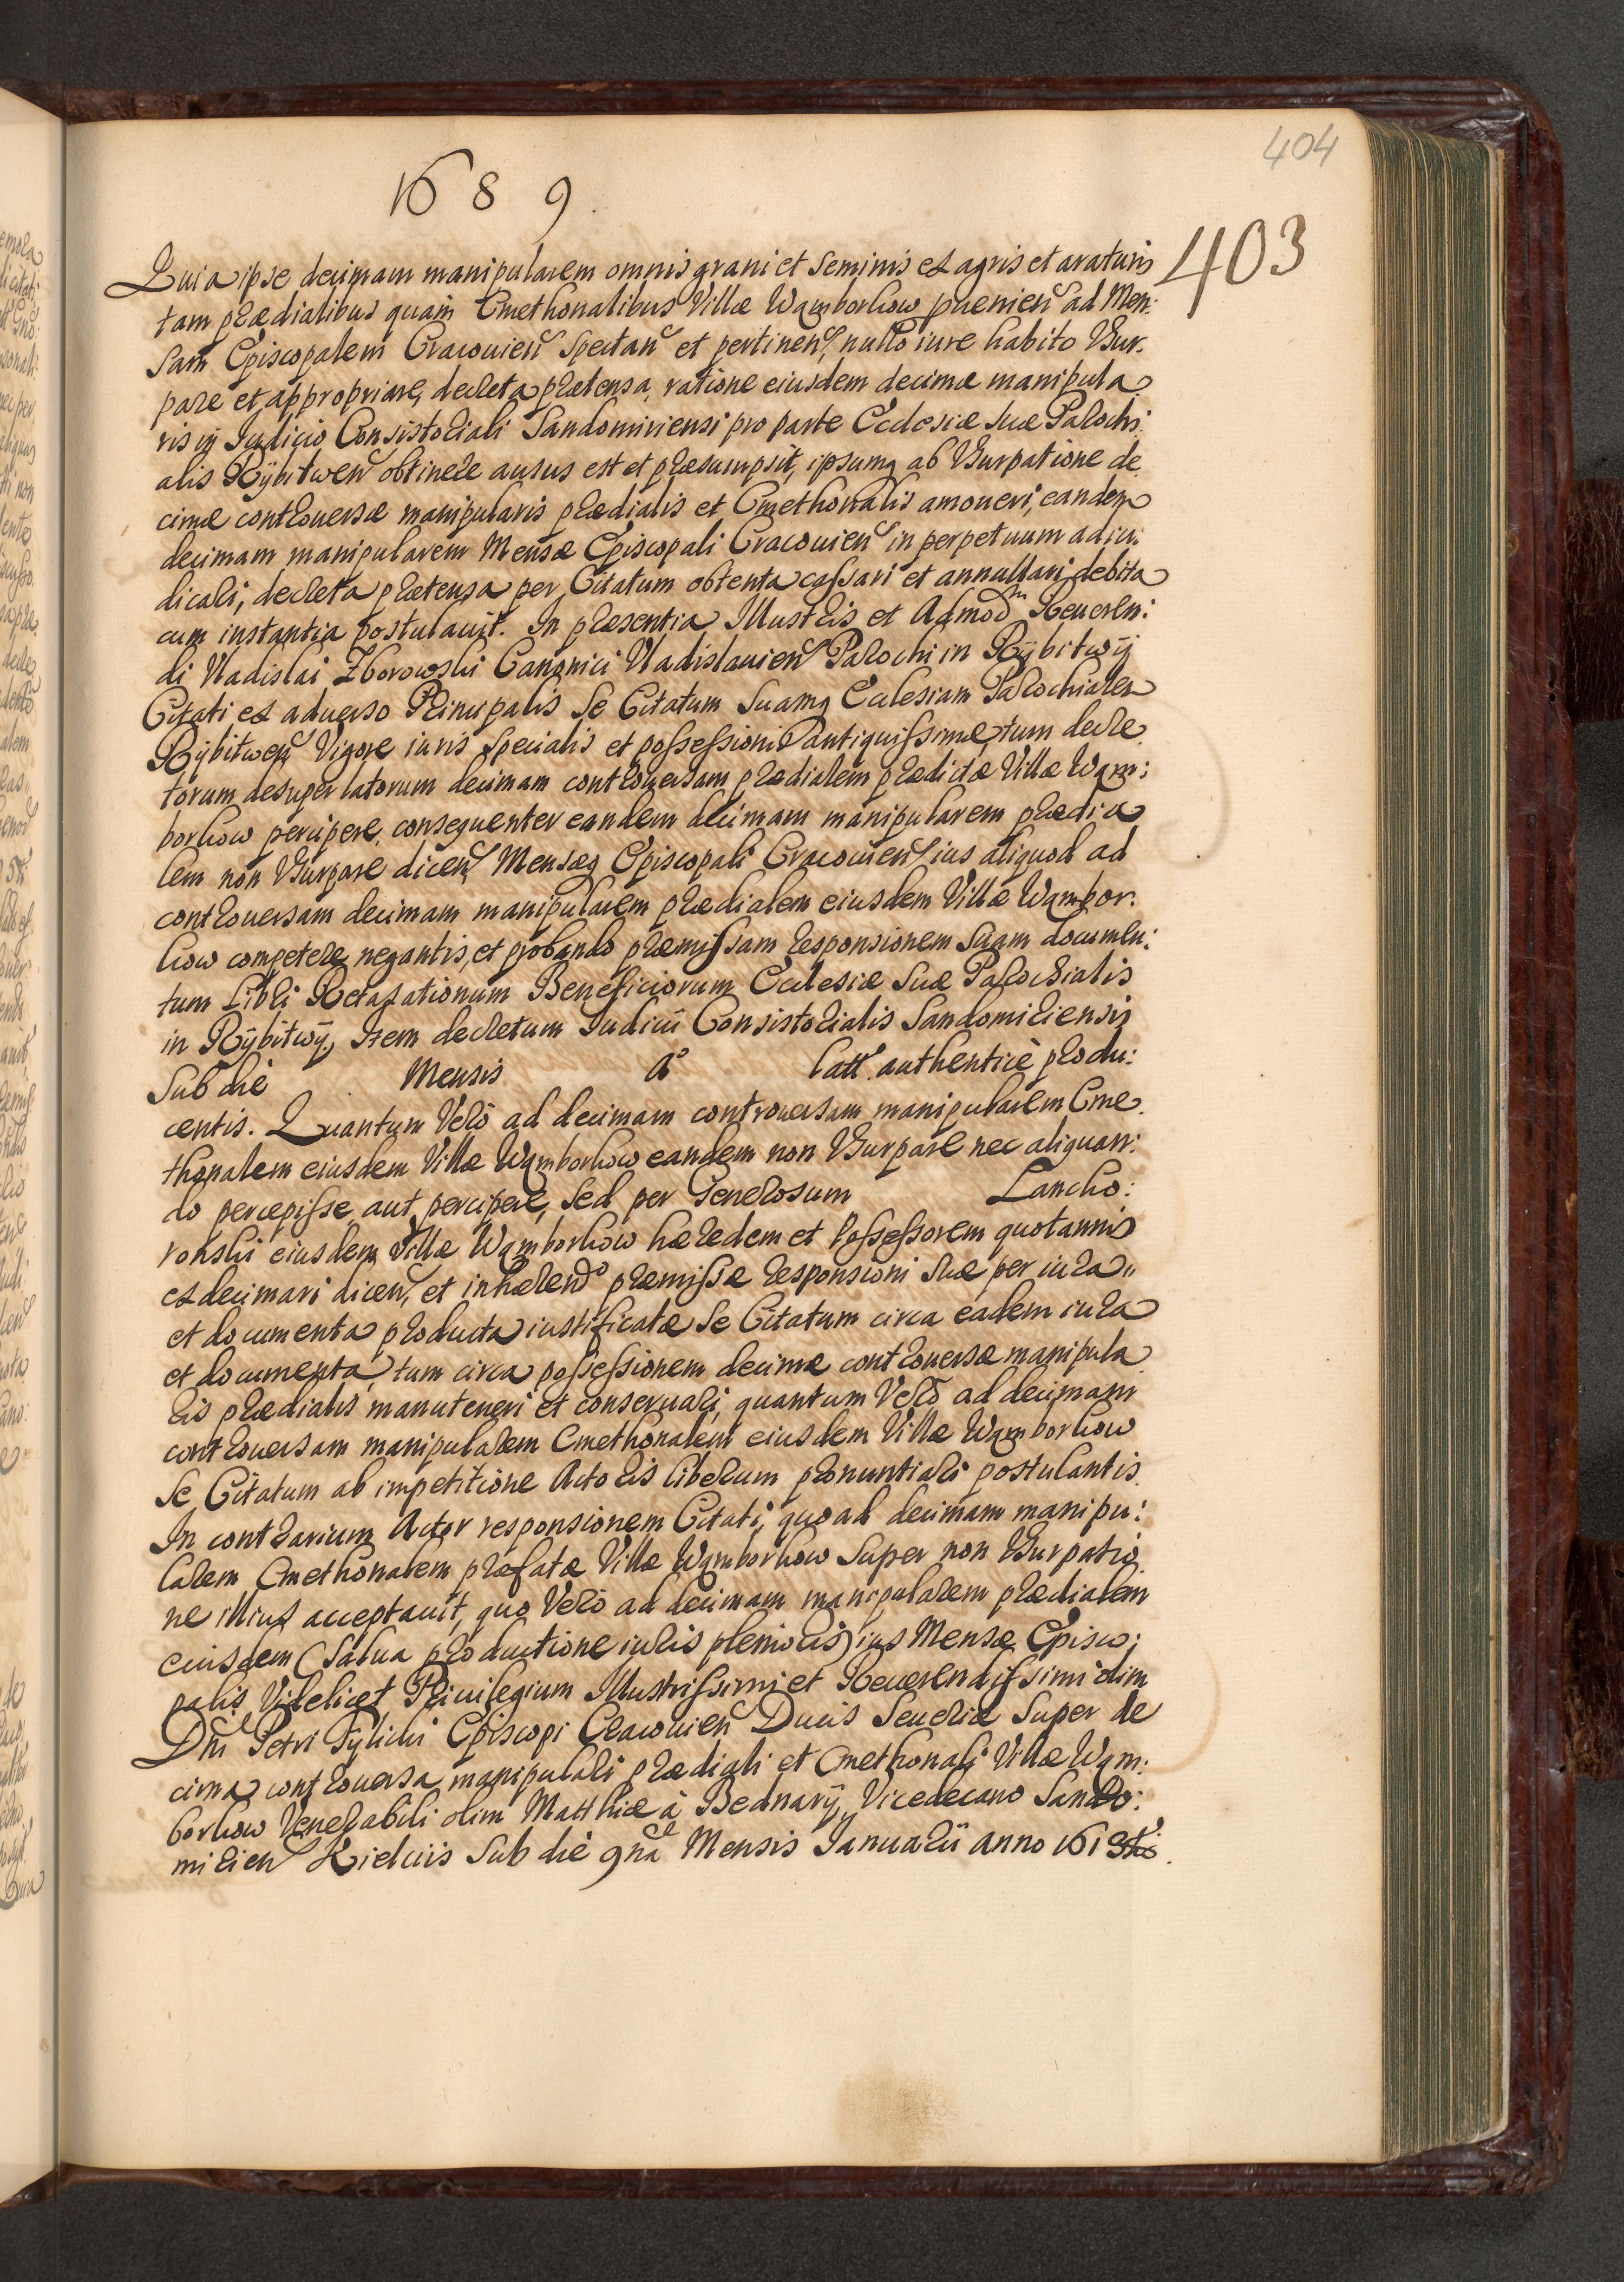 404
1689.
403
Quia ipse decimam manipularem omnis grani et seminis ex agris et araturis
tam prædialibus quam Cmethonalibus Villæ Wąmborkow prouenien ad Men:
sam Episcopalem Cracouien spectan et pertinen, nullo iure habito Vsur-
pare et appropriare, decreta prætensa, ratione eiusdem decimæ manipula
ris in Iudicio Consistoriali Sandomiriensi pro parte Ecclesiæ suæ Parochi:
alis Rÿbitwen obtinere ausus est et præsumpsit, ipsumq ab Vsurpatione de
cimæ controuersæ manipularis prædialis et Cmethonalis amoueri, eandem
decimam manipularem Mensæ Episcopali Cracouien in perpetuum adiu:
dicari, decreta prætensa per Citatum obtenta cassari et annullari debita
cum instantia postulauit. In præsentia Illustris et Admod Reueren:
di Vladislai Zborowski Canonici Vladislauien Parochi in Rÿbitwÿ
Citati ex aduerso Principalis se Citatum suamq Ecclesiam Parochialem
Rÿbitwen Vigore iuris specialis et possessionis antiquissimæ, tum decre
torum desuper latorum decimam controuersam prædialem prædictæ Villæ Wąm:
borkow percipere, consequenter eandem decimam manipularem prædia
lem non Vsurpare dicen, Mensæq Episcopali Cracouien ius aliquod ad
controuersam decimam manipularem prædialem eiusdem Villæ Wąmbor:
kow competere negantis, et probando præmissam responsionem suam documen:
tum Libri Retaxationum Beneficiorum Ecclesiæ suæ Parochialis
in Rÿbitwÿ, Item decretum Iudicii Consistorialis Sandomiriensis
sub die Mensis Aº latt. authenticè produ:
centis. Quantum Verò ad decimam controuersam manipularem Cme
thonalem eiusdem Villæ Wąmborkow eandem non Vsurpare nec aliquan:
do percepisse, aut percipere, sed per Generosum Lancko:
ronski eiusdem Villæ Wąmborkow hæredem et Possessorem quotannis
exdecimari dicen, et inhærendo præmissæ responsioni suæ per iura
et documenta producta iustificatæ se Citatum circa eadem iura
et documenta, tum circa possessionem decimæ controuersæ manipula
ris prædialis manuteneri et conseruari, quantum Verò ad decimam
controuersam manipularem Cmethonalem eiusdem Villæ Wąmborkow
se Citatum ab impetitione Actoris liberum pronuntiari postulantis.
In contrarium Actor responsionem Citati, quoad decimam manipu:
larem Cmethonalem præfatæ Villæ Wąmborkow super non Vsurpatio
ne illius acceptauit, quo Verò ad decimam manipularem prædialem
eiusdem (salua productione iuris plenioris) ius Mensæ Episco:
palis Videlicet Priuilegium Illustrissimi et Reuerendissimi olim
Dni Petri Tÿlicki Episcopi Cracouien Ducis Seueriæ super de
cima controuersa manipulari prædiali et Cmethonali Villæ Wąm:
borkow Venerabili olim Matthiæ à Bednarÿ Vicedecano Sando:
mirien Kielciis sub die 9na Mensis Ianuarii anno 1613tio.